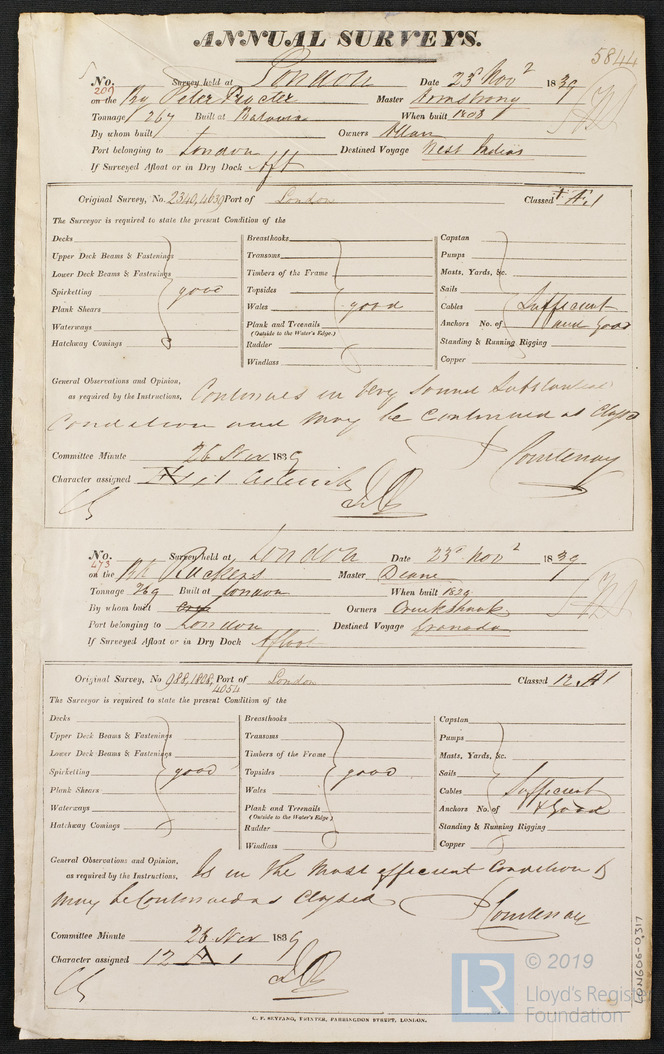 ANNUAL SURVEYS.
5844
No. 209 Survey held at London Date 23d Nov 2 1839
on the Bg Peter Procter Master Armstrong
Tonnage 267 Built at When built 1803
By whom built Owners Allan
Port belonging to London Destined Voyage West Indies
If Surveyed Afloat or in Dry Dock Aft
Original Survey, No. 2340, 4639 Port of London Classed Æ 1
The Surveyor is required to state the present Condition of the
Decks Breasthooks Capstan
Upper Deck Beams & Fastenings Transoms Pumps
Lower Deck Beams & Fastenings Timbers of the Frame Masts, Yards, &c.
Spirketting good Topsides Sails
Plank Shears Wales good Cables Sufficient
Waterways Plank and Treenails Anchors No. of and Good
(Outside to the Water's Edge.)
Hatchway Comings Rudder Standing & Running Rigging
Windlass Copper
General Observations and Opinion, Continues in very sound substantial
as required by the Instructions,
condition and may be continued as classed
Courtenay
Committee Minute 26 Nov 1839
Character assigned Æ 1
No. 473 Survey held at London Date 23d Nov 2 1839
on the Bk Ruckers Master Deane
Tonnage 269 Built at London When built 1829
By whom built Owners Cruikshank
Port belonging to London Destined Voyage Granada
If Surveyed Afloat or in Dry Dock Afloat
Original Survey, No 988, 1808, 4054 Port of London Classed 12 A 1
The Surveyor is required to state the present Condition of the
Decks Breasthooks Capstan
Upper Deck Beams & Fastenings Transoms Pumps
Lower Deck Beams & Fastenings Timbers of the Frame Masts, Yards, &c.
Spirketting good Topsides good Sails
Plank Shears Wales Cables Sufficient
Waterways Plank and Treenails Anchors No. of & Good
(Outside to the Water's Edge.)
Hatchway Comings Rudder Standing & Running Rigging
Windlass Copper
General Observations and Opinion, Is in the most efficient condition &
as required by the Instructions,
may be Continued as Classed
Courtenay
Committee Minute 26 Nov 1839
Character assigned 12 A 1
C. F. SEYFANG, PRINTER, FARRINGDON STREET, LONDON.
LON606-0317
LR © 2019
Lloyd's Register
Foundation